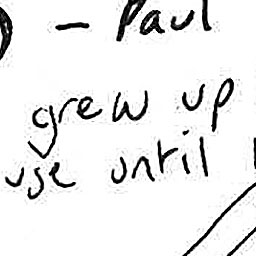 – Paul
grew up
use until